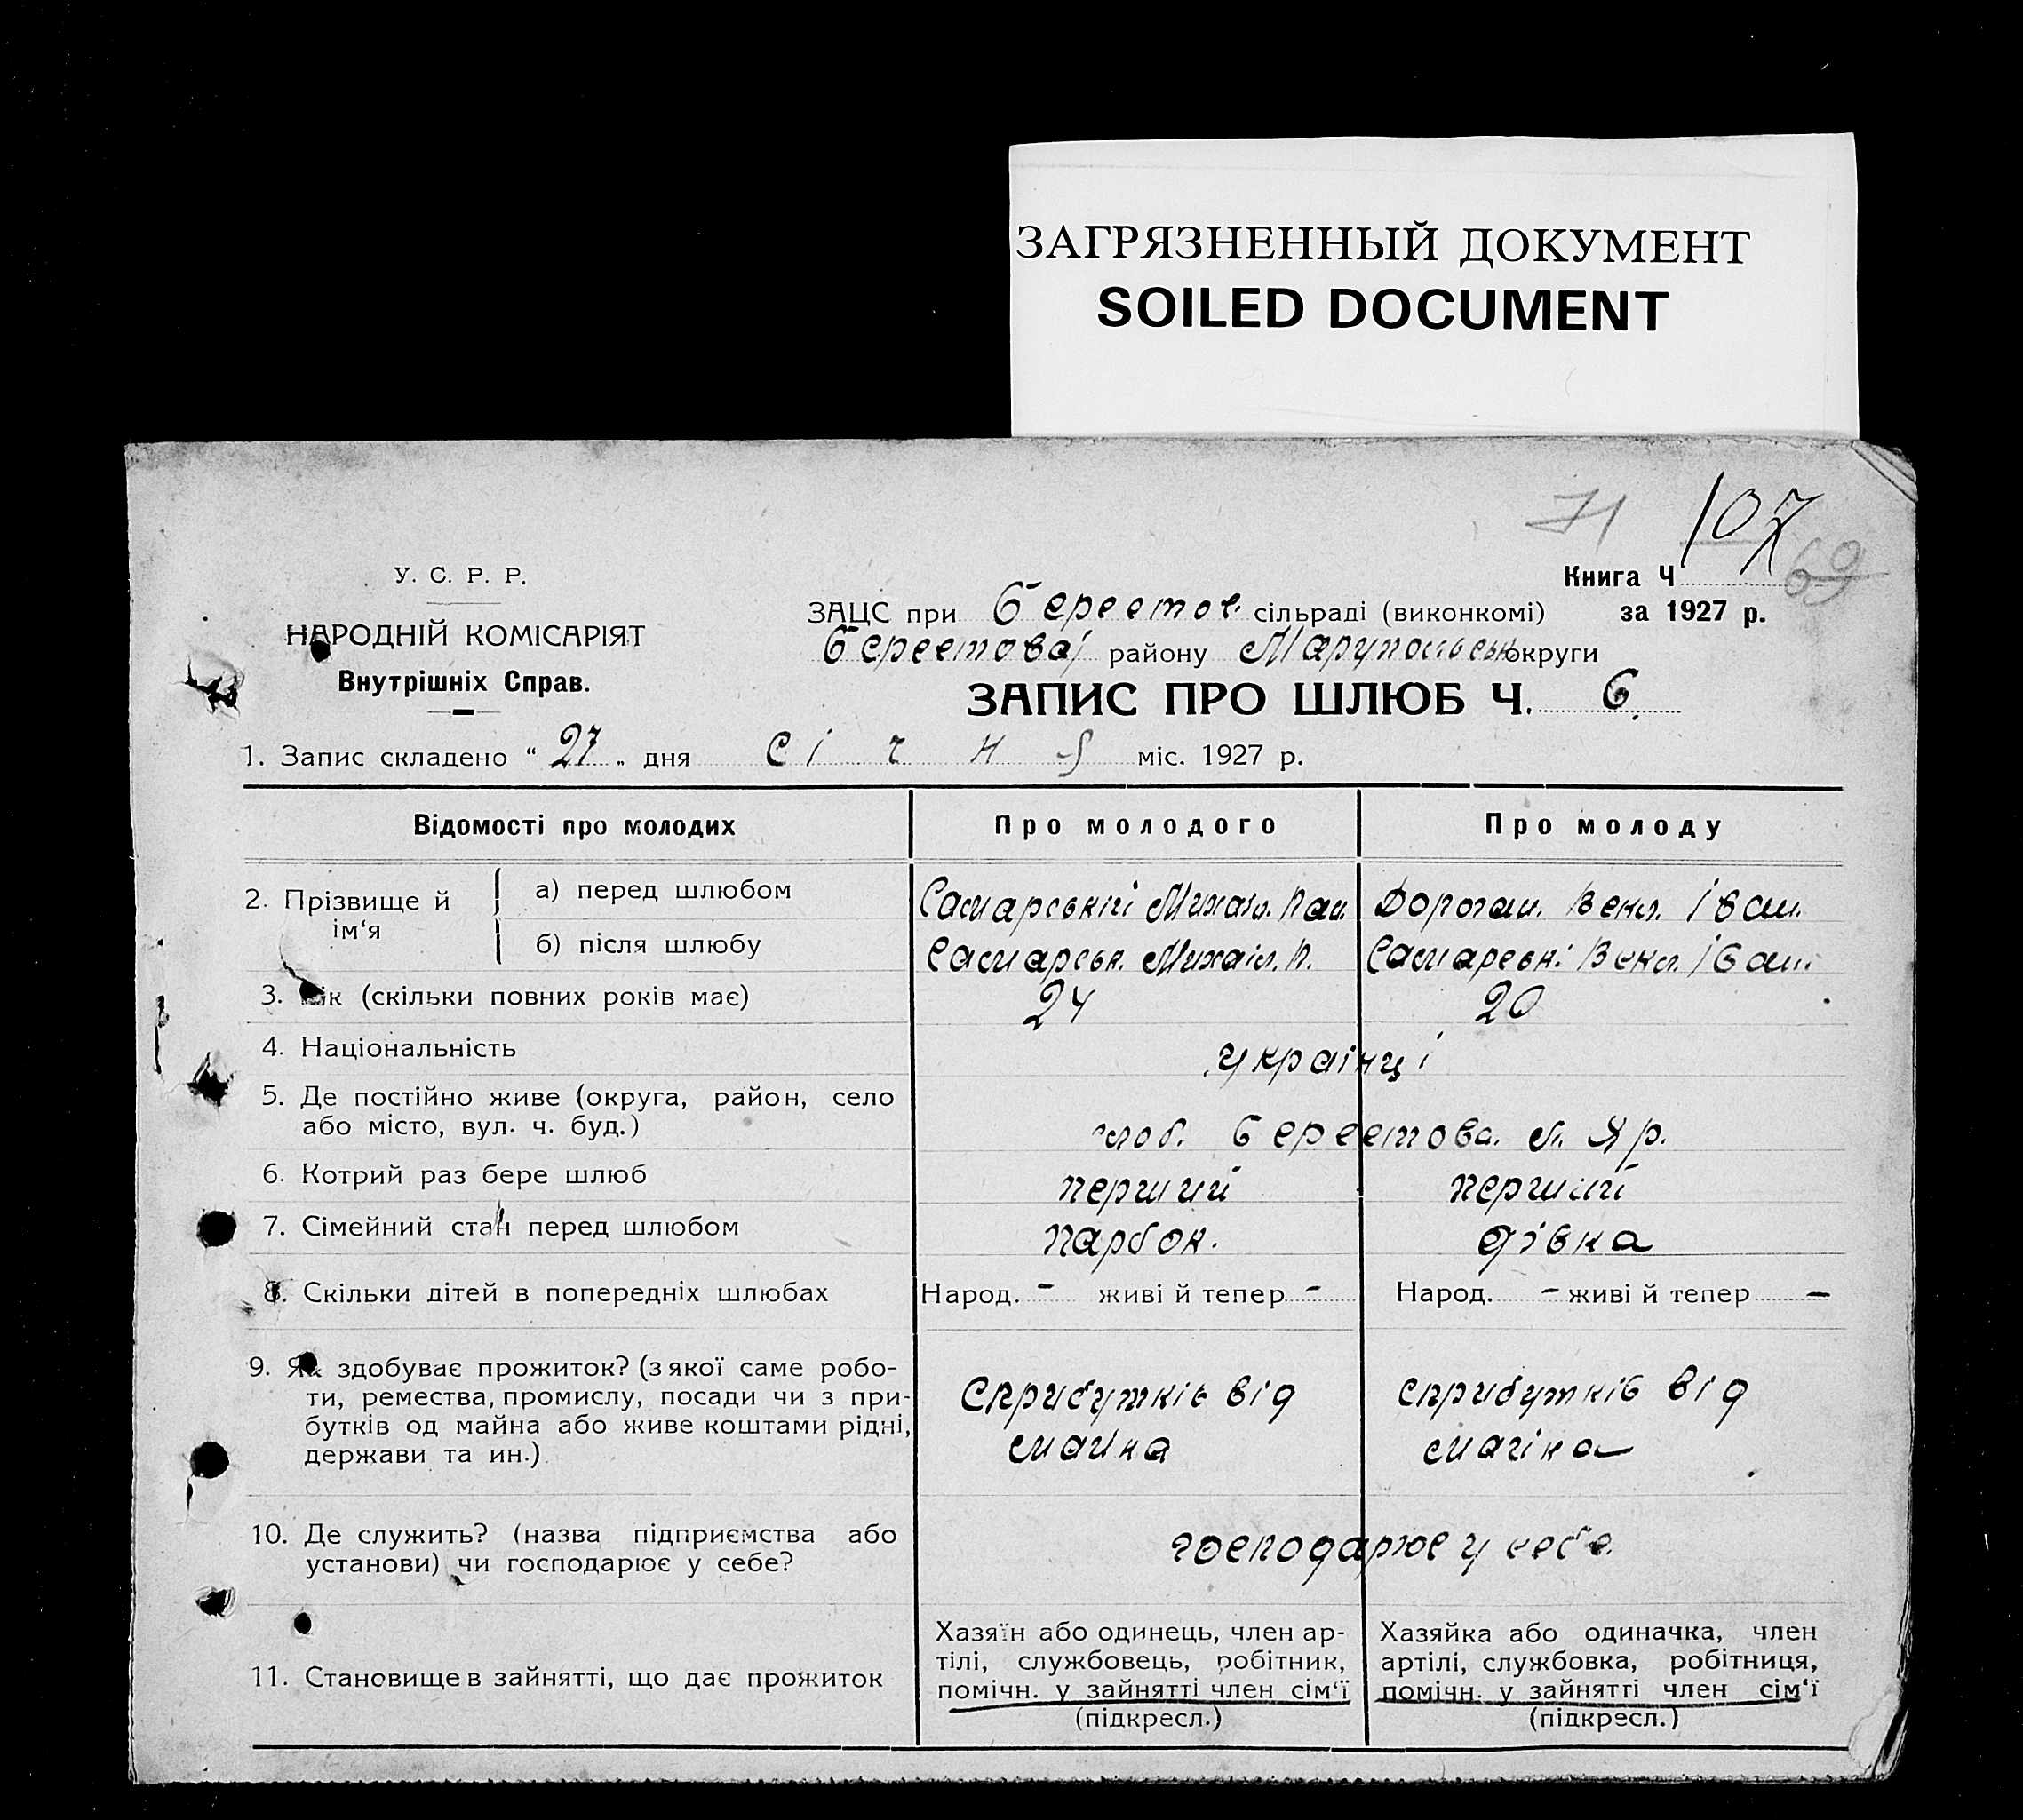 ЗАГРЯЗНЕННЫЙ ДОКУМЕНТ
SOILED DOCUMENT
71 107
69
У. С. Р. Р.
НАРОДНІЙ КОМІСАРІЯТ
Внутрішніх Справ.
Книга Ч
за 1927 р.
ЗАЦС при Берестов. сільраді (виконкомі)
району Марупольськ округи
ЗАПИС ПРО ШЛЮБ Ч. 6.
1. Запис складено “ 27 „ дня січня міс. 1927 р.
Відомості про молодих Про молодого Про молоду
2. Прізвище й ім‘я
а) перед шлюбом Самарській Михаіл. Пав. Дороган. Векл. Іван.
б) після шлюбу Самарськ. Михаіл. П. Самарські Векл. Іван.
3. Вік (скільки повних років має) 24 20
4. Національність українці
5. Де постійно живе (округа, район, село
або місто, вул. ч. буд.) Берестова.
6. Котрий раз бере шлюб перший перший
7. Сімейний стан перед шлюбом парбок. дівка
8. Скільки дітей в попередніх шлюбах Народ. – живі й тепер – Народ. – живі й тепер –
9. Як здобуває прожиток? (з якої саме робо-
ти, ремества, промислу, посади чи з при-
бутків од майна або живе коштами рідні,
держави та ин.)
Сприбутків від
майна
сприбутків від
майна
10. Де служить? (назва підприємства або
установи) чи господарює у себе?
господарює у себе.
11. Становище в зайнятті, що дає прожиток
Хазяїн або одинець, член ар-
тілі, службовець, робітник,
помічн. у зайнятті член сім‘ї
(підкресл.)
Хазяйка або одиначка, член
артілі, службовка, робітниця,
помічн. у зайнятті член сім‘ї
(підкресл.)